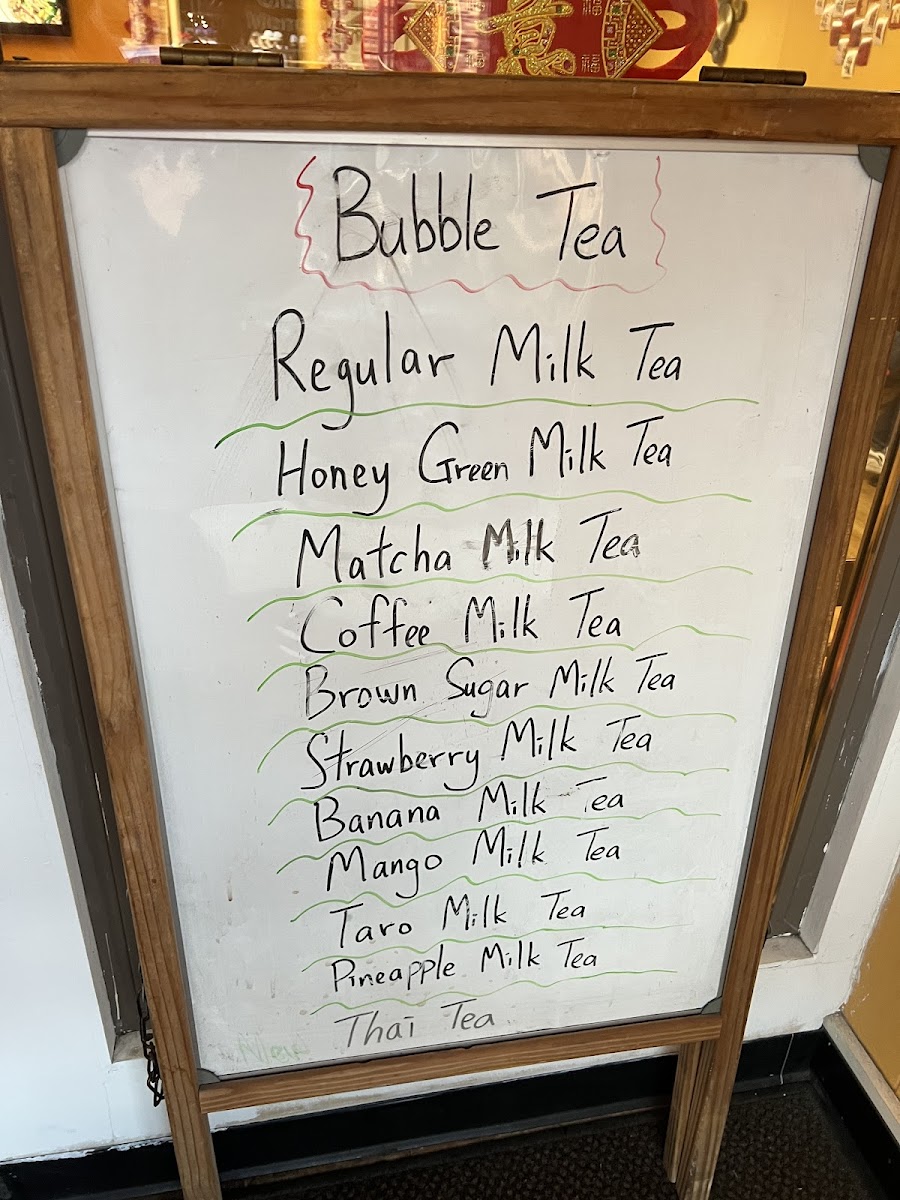 意
Bubble Tea
Regular Milk Tea
Honey Green Milk Tea
Matcha Milk Tea
Coffee Milk Tea
Brown Sugar Milk Tea
Strawberry Milk Tea
Banana Milk Tea
Mango Milk Tea
Taro Milk Tea
Pineapple Milk Tea
Thai Tea